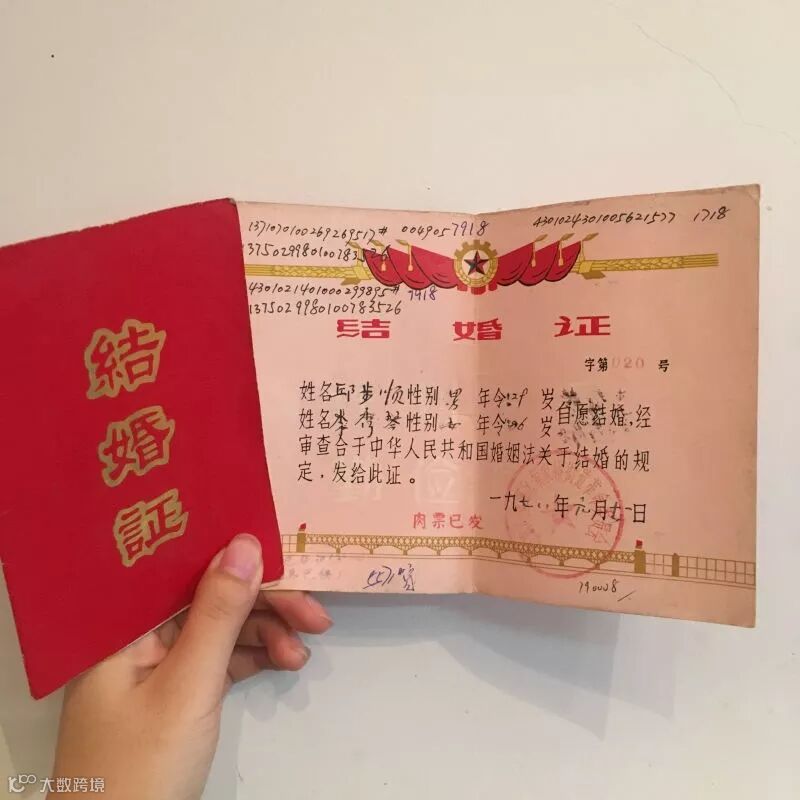 結婚証
1371070100269269517# 0049057918
1375029980100783526
4301024301005621577 1718
4301021401000299895# 7918
1375029980100783526
结婚证
字第020号
姓名邱步顺性别男 年令29岁
姓名李秀琴性别女 年令26岁自愿结婚,经
审查合于中华人民共和国婚姻法关于结婚的规
定,发给此证。
一九七八年元月 日
肉票已发
190008/
大数跨境